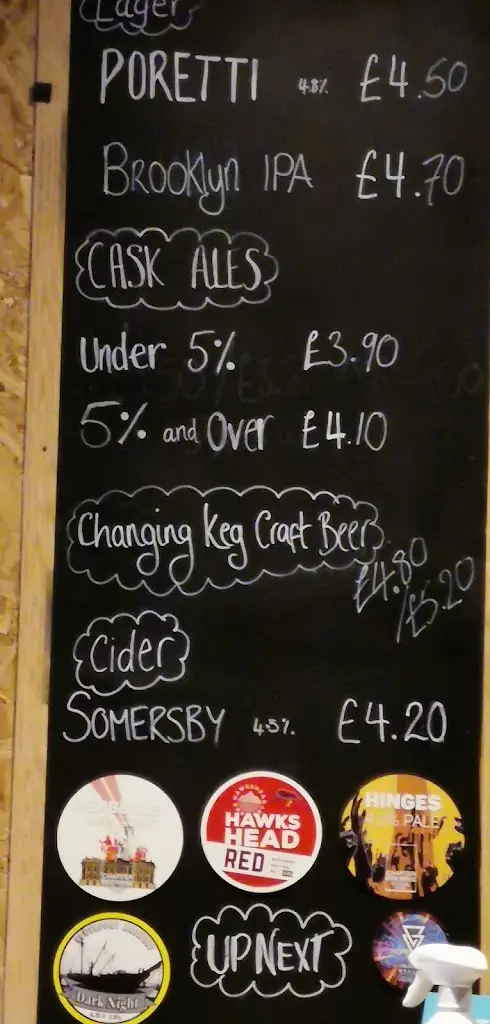 Lager
PORETTI 4.8% £4.50
BROOKlyn IPA £4.70
CASK ALES
Under 5% £3.90
5% and Over £4.10
Changing Keg Craft Beer
£4.80
/£5.20
Cider
SOMERSBY 4.5% £4.20
HAWKS
HEAD
RED
HINGES
PALE
UP NEXT
Dark Night